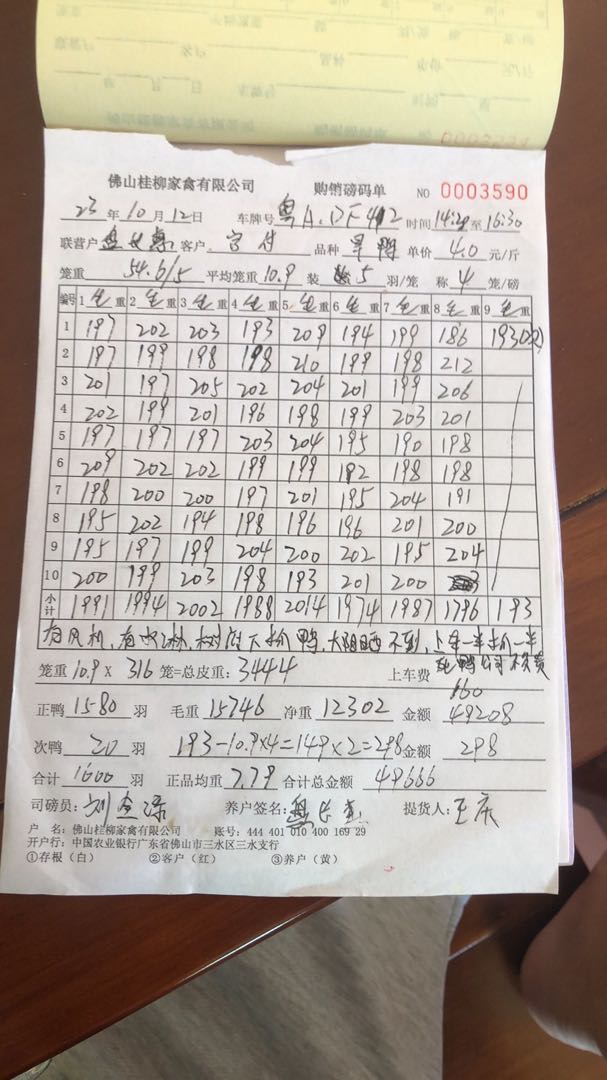 佛山桂柳家禽有限公司 购销磅码单 NO 0003590
23年10月12日 车牌号 粤A.DF412 时间 14:20至16:30
联营户 客户 品种 旱鸭 单价 4.0 元/斤
笼重 54.6/5 平均笼重 10.9 装 5 羽/笼 称 4 笼/磅
编号 1 毛重 2 毛重 3 毛重 4 毛重 5 毛重 6 毛重 7 毛重 8 毛重 9 毛重
1 197 202 203 193 209 194 199 186 193(次)
2 197 199 198 198 210 199 198 212
3 201 197 205 202 204 201 199 206
4 202 199 201 196 198 199 203 201
5 197 197 197 203 204 195 190 198
6 209 202 202 199 199 192 198 198
7 198 200 200 197 201 195 204 191
8 195 202 194 198 196 196 201 200
9 195 197 199 204 200 202 195 204
10 200 199 203 198 193 201 200
小计 1991 1994 2002 1988 2014 1974 1987 1796 193
有风机,有水淋,树荫下抓鸭,太阳晒不到,上车一半抓一半
死鸭公司不负责
笼重 10.9 X 316 笼=总皮重: 3444 上车费 160
正鸭 1580 羽 毛重 15746 净重 12302 金额 49208
次鸭 20 羽 193-10.9×4=149×2=298 金额 298
合计 1600 羽 正品均重 7.79 合计总金额 49666
司磅员: 养户签名: 提货人: 王庆
户 名: 佛山桂柳家禽有限公司 账号: 444 401 010 400 169 29
开户行: 中国农业银行广东省佛山市三水区三水支行
①存根(白) ②客户(红) ③养户(黄)